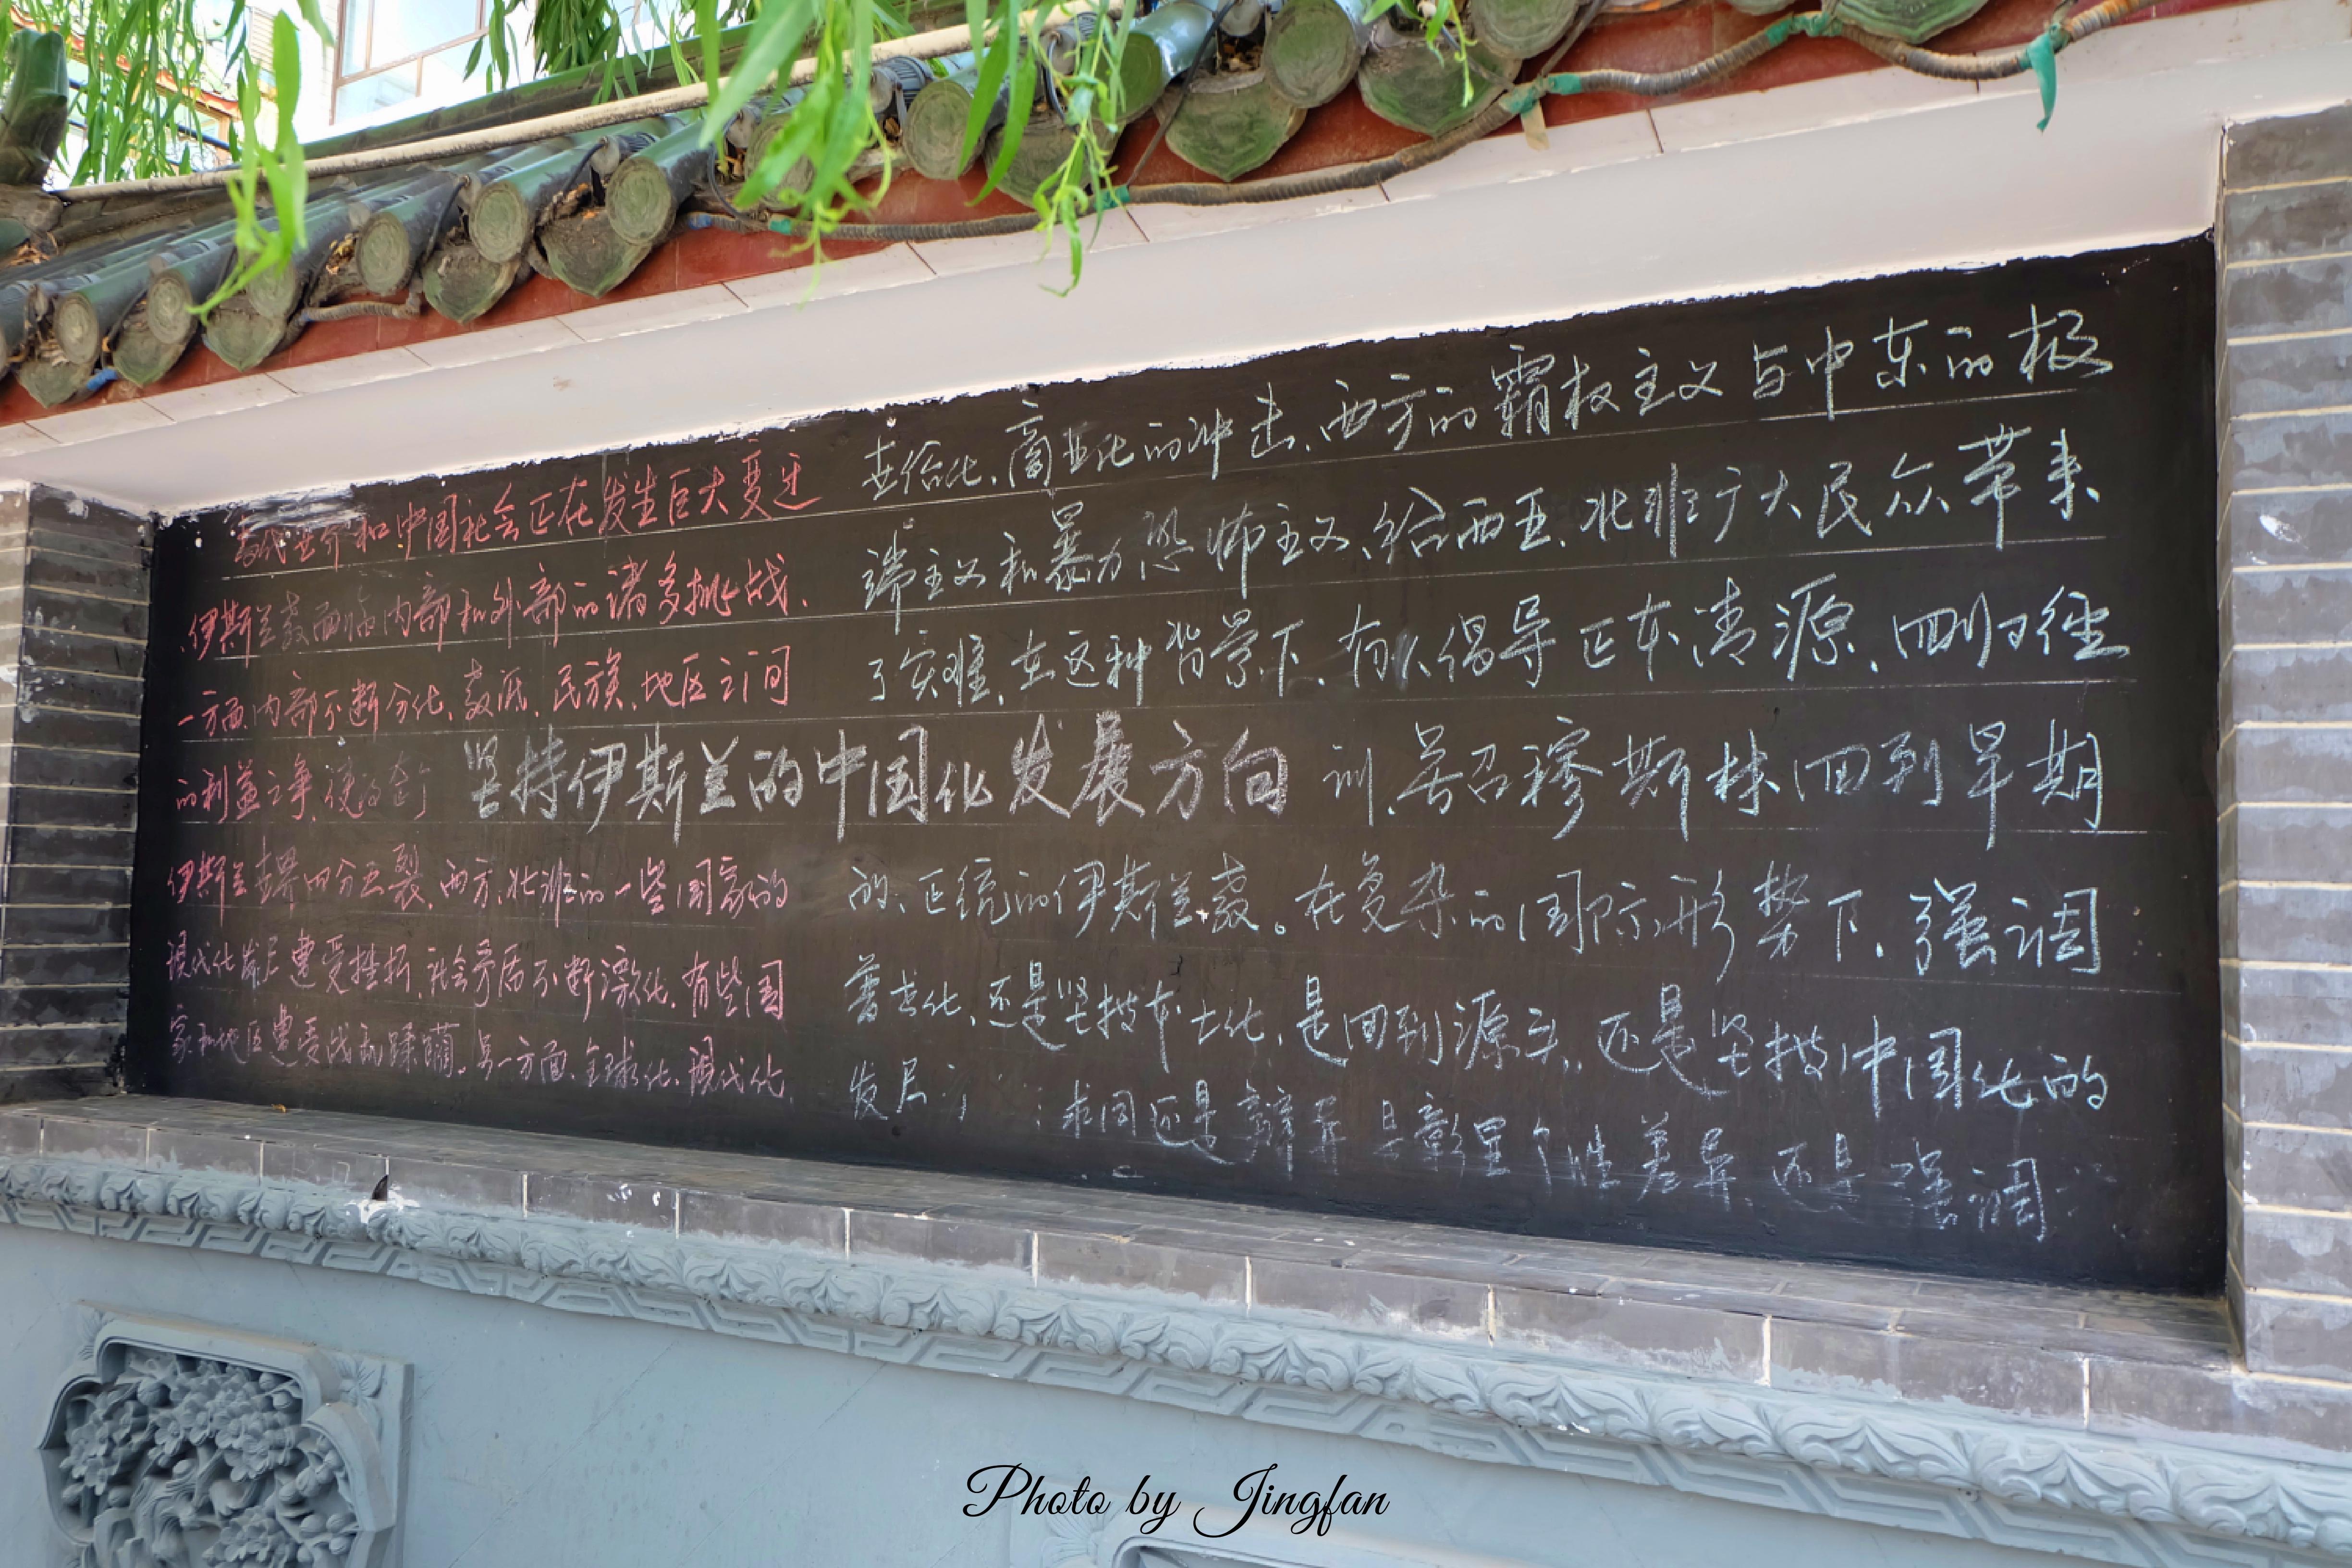 当代世界和中国社会正在发生巨大变迁
伊斯兰教面临内部和外部的诸多挑战、
一方面、内部不断分化、教派、民族、地区之间
的利益之争、使得整个
伊斯兰世界四分五裂、西方、北非的一些国家的
现代化发展遭受挫折、社会矛盾不断激化、有些国
家和地区遭受战乱蹂躏。另一方面、全球化、现代化、
坚持伊斯兰的中国化发展方向
世俗化、商业化的冲击、西方的霸权主义与中东的极
端主义和暴力恐怖主义、给西亚、北非广大民众带来
了灾难、在这种背景下、有人倡导正本清源、回归经
训、号召穆斯林回到早期
的、正统的伊斯兰教。在复杂的国际形势下、强调
普世化、还是坚持本土化、是回到源头、还是坚持中国化的
发展
求同还是辩异 是彰显个性差异、还是强调
Photo by Jingfan